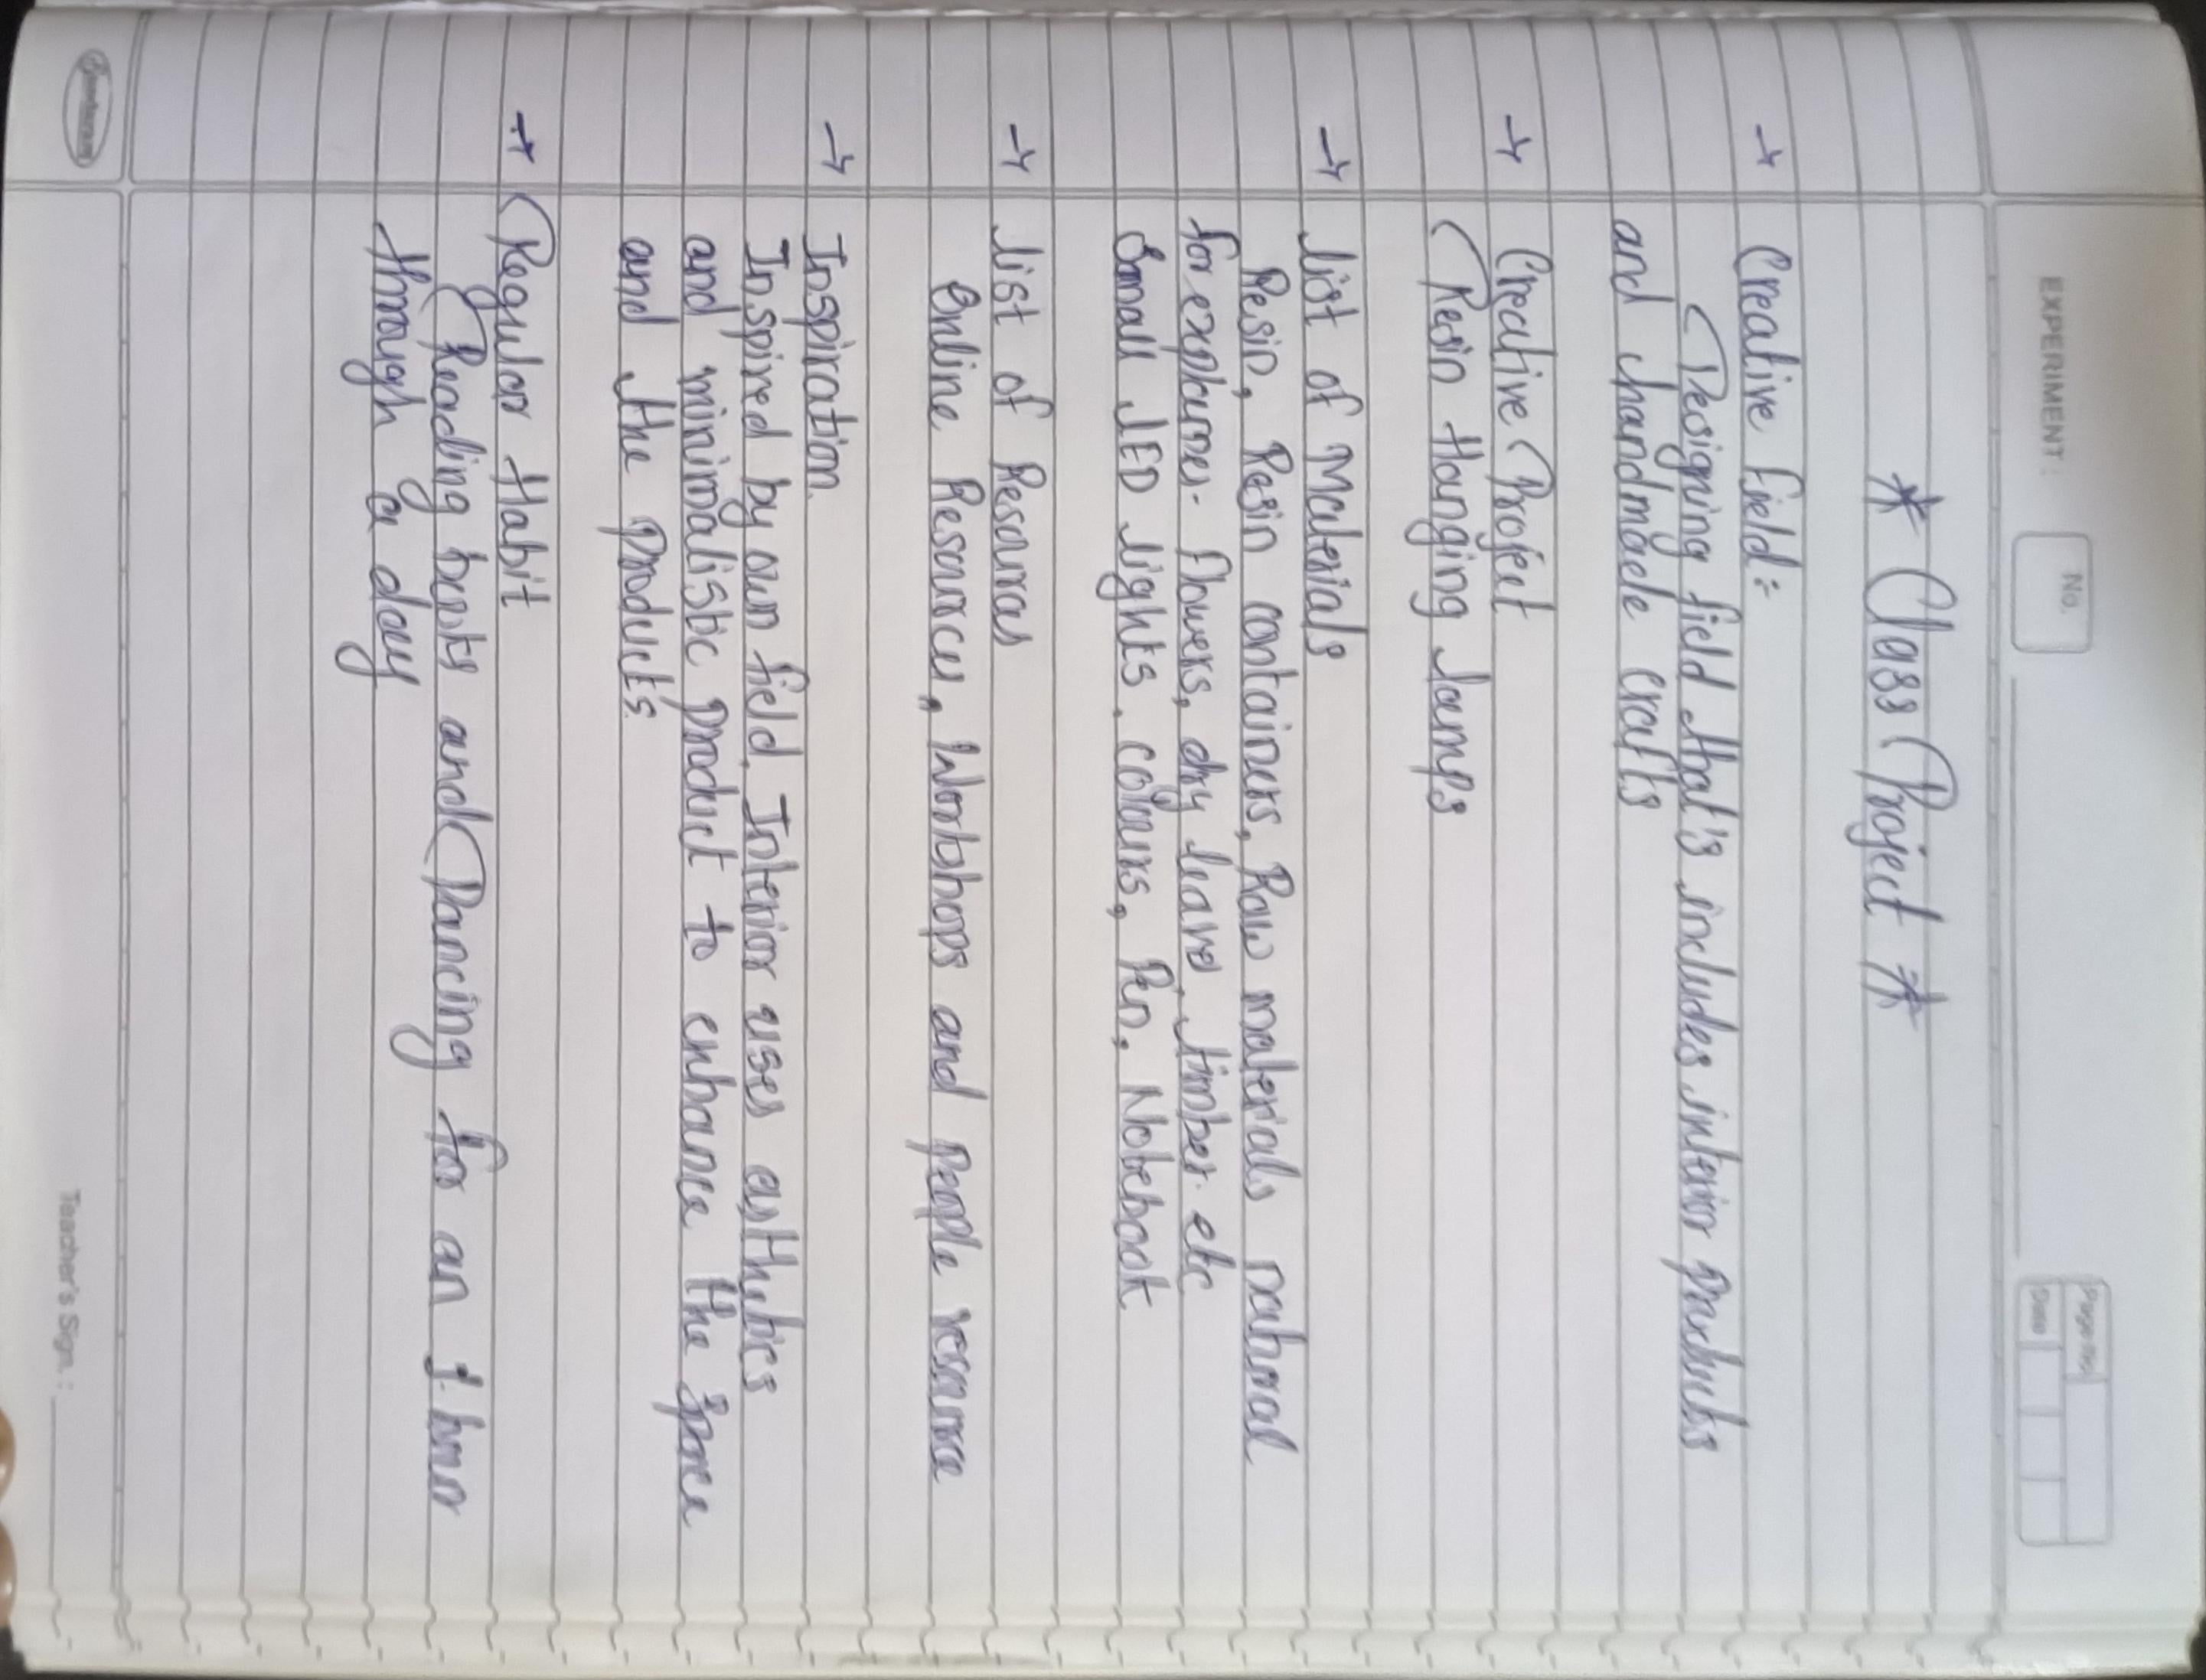 EXPERIMENT:
No.
Page No.
Date
* Class Project *
→ Creative field:
Designing field that's includes interior products
and handmade crafts
→ Creative Project
Resin Hanging lamps
→ list of Materials
Resin, Resin containers, Raw materials natural
for explumes. flowers, dry leave, timber. etc
Small LED lights, colours, Pen, Notebook
→ list of Resources
Online Resources, Workshops and people resource
→ Inspiration
Inspired by own field. Interior uses asthetics
and minimalistic product to enhance the space
and the products.
→ Regular Habit
Reading books and Dancing for an 1 hour
through a day
Teacher's Sign.: